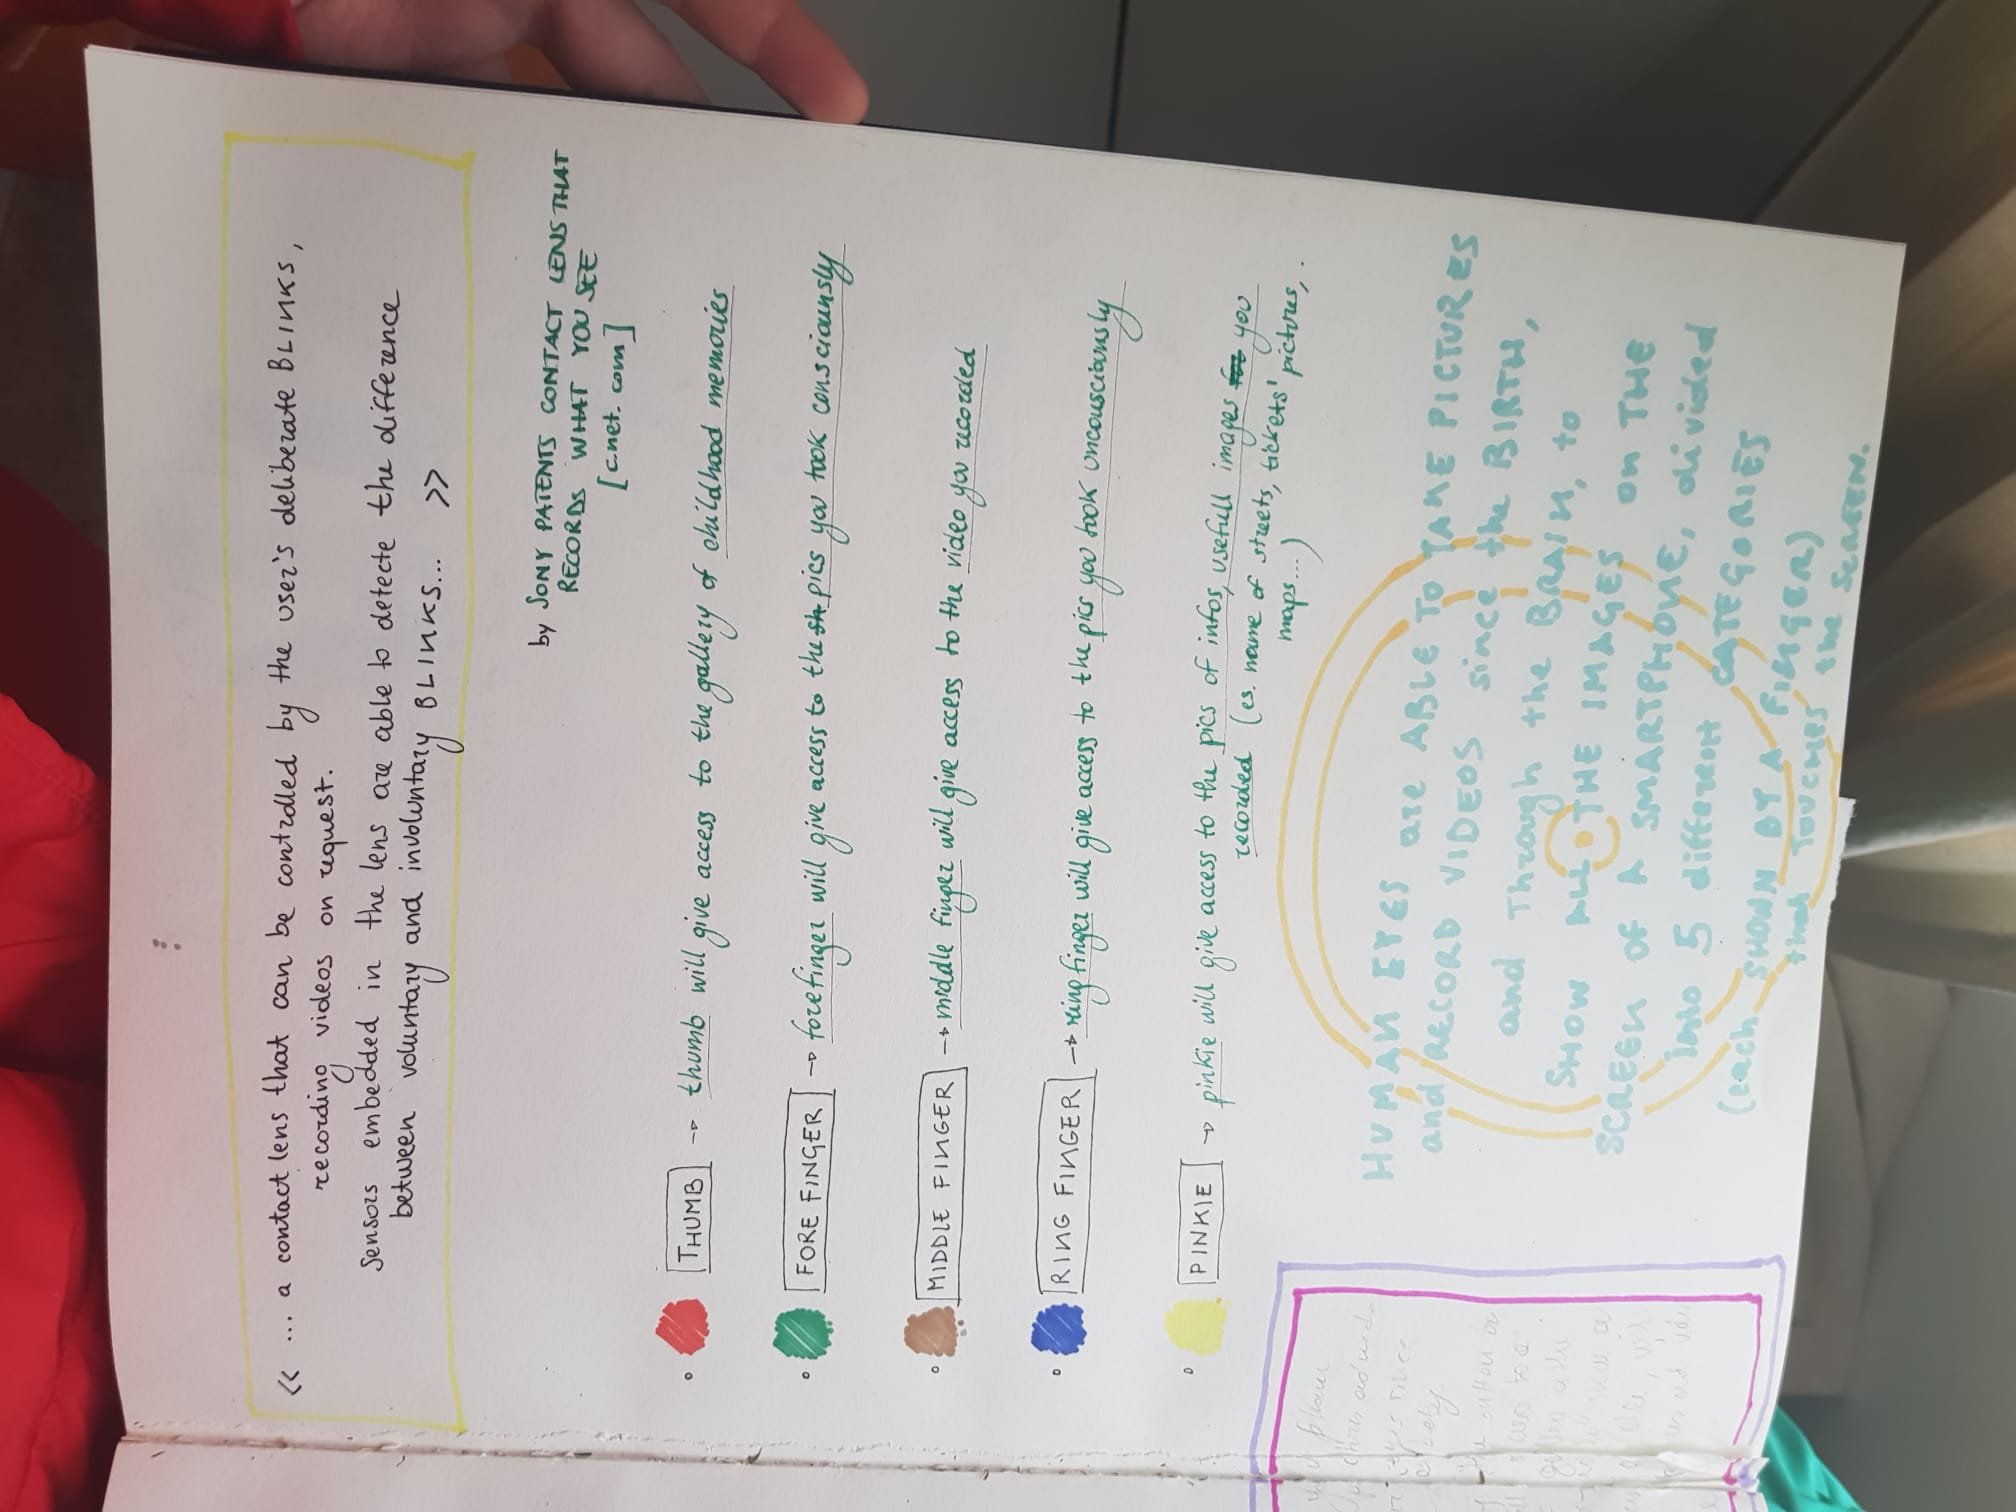 << ... a contact lens that can be controlled by the user's deliberate BLINKS,
recording videos on request.
Sensors embedded in the lens are able to detecte the difference
between voluntary and involuntary BLINKS... >>
by SONY PATENTS CONTACT LENS THAT
RECORDS WHAT YOU SEE
[c.net.com]
THUMB → thumb will give access to the gallery of childhood memories
FORE FINGER → forefinger will give access to the pics you took consciounsly
MIDDLE FINGER → middle finger will give access to the video you recorded
RING FINGER → ring finger will give access to the pics you took unconsciounsly
PINKIE → pinkie will give access to the pics of infos, usefull images you
recorded (es. name of streets, tickets' pictures,
maps...)
HUMAN EYES are ABLE TO TAKE PICTURES
and RECORD VIDEOS since the BIRTH,
and Through the BRAIN, to
SHOW ALL THE IMAGES on THE
SCREEN OF A SMARTPHONE, divided
into 5 different CATEGORIES
(each SHOWN BY A FINGER)
that TOUCHES the SCREEN.